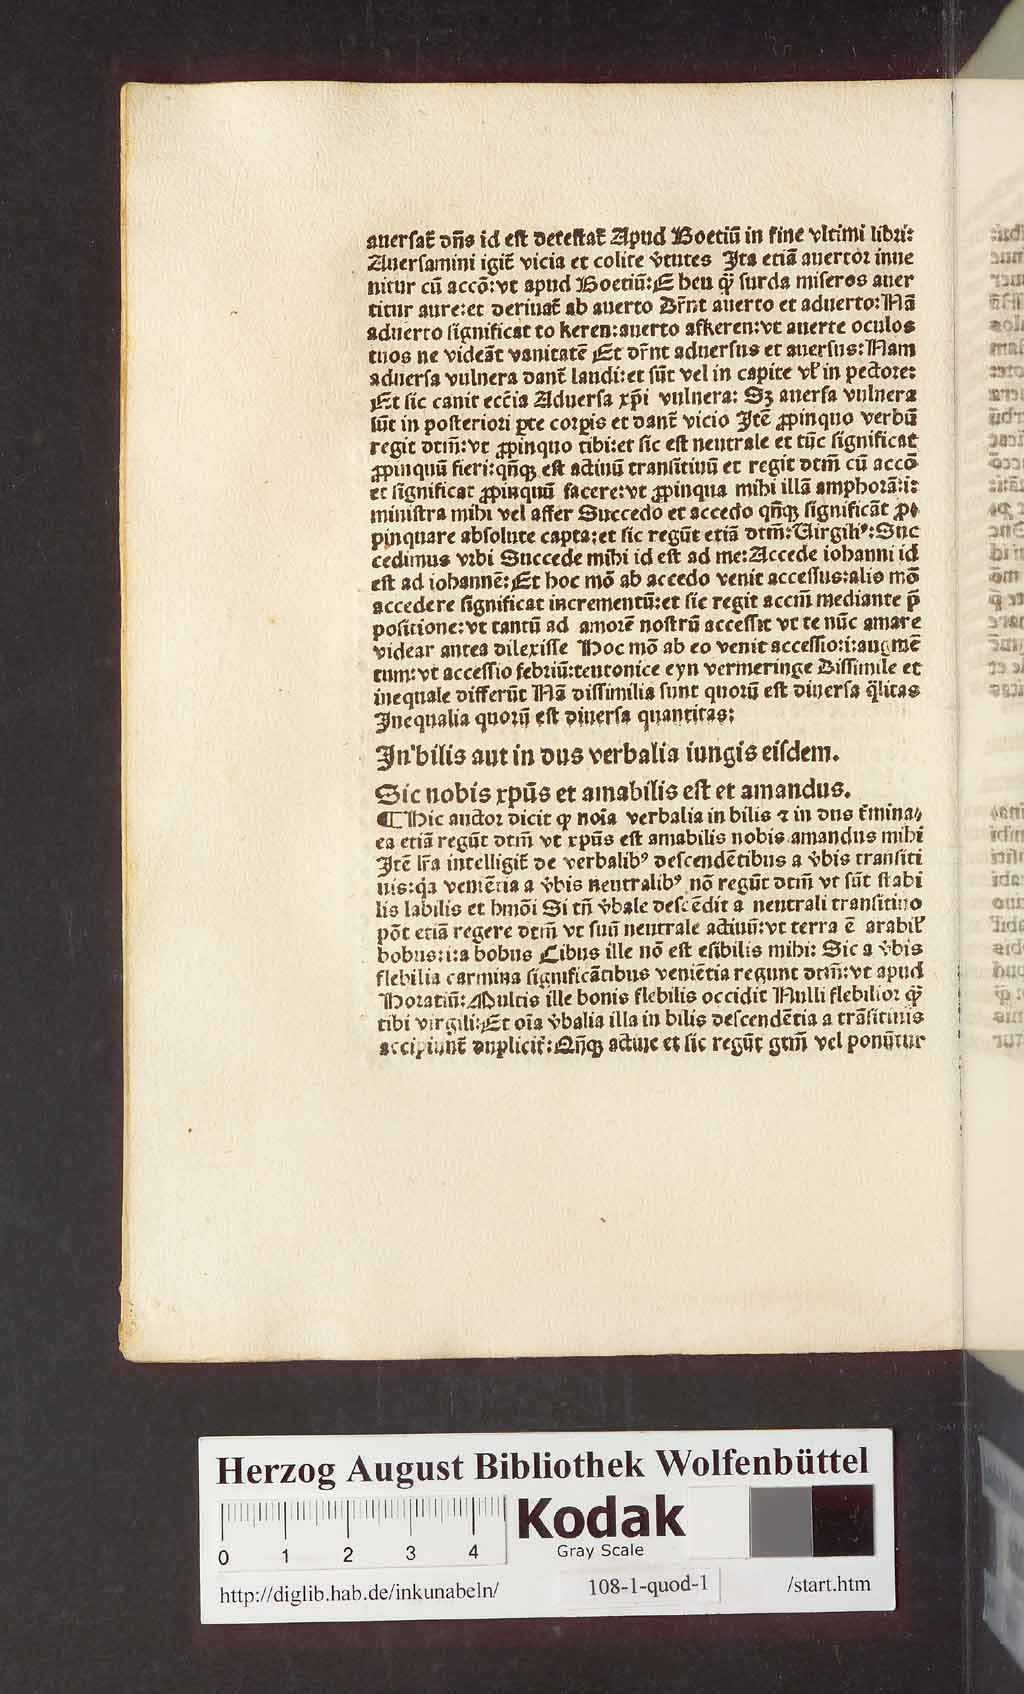 auersat̄ dn̄s id est detestat̄ Apud Boetiū in fine vltimi libri:
Auersamini igit̄ vicia et colite v̄tutes Ita etiā auertor inue
nitur cū accō: vt apud Boetiū: E heu q̄ surda miseros auer
titur aure: et deriuat̄ ab auerto Dr̄nt auerto et aduerto: Nā
aduerto significat to keren: auerto afkeren: vt auerte oculos
tuos ne videāt vanitatē Et dr̄nt aduersus et auersus: Nam
aduersa vulnera dant̄ laudi: et sūt vel in capite vl̄ in pectore:
Et sic canit ecc̄ia Aduersa xp̄i vulnera: Sꝫ auersa vulnera
sūt in posteriori ꝑte corꝑis et dant̄ vicio Itē ꝓpinquo verbū
regit dtm̄: vt ꝓpinquo tibi: et sic est neutrale et tūc significat
ꝓpinquū fieri: qn̄qꝫ est actiuū transitiuū et regit dtm̄ cū accō
et significat ꝓpinquū facere: vt ꝓpinqua mihi illā amphorā: i:
ministra mihi vel affer Succedo et accedo qn̄qꝫ significāt ꝓ
pinquare absolute capta: et sic regūt etiā dtm̄: Virgiliꝰ: Suc
cedimus vrbi Succede mihi id est ad me: Accede iohanni id
est ad iohannē: Et hoc mō ab accedo venit accessus: alio mō
accedere significat incrementū: et sic regit accm̄ mediante p̄
positione: vt tantū ad amorē nostrū accessit vt te nūc amare
videar antea dilexisse Hoc mō ab eo venit accessio: i: augmē
tum: vt accessio febriū: teutonice eyn vermeringe Dissimile et
inequale differūt Nā dissimilia sunt quorū est diuersa q̄litas
Inequalia quorū est diuersa quantitas:
In'bilis aut in dus verbalia iungis eisdem.
Sic nobis xp̄us et amabilis est et amandus.
¶ Hic auctor dicit ꝙ noīa verbalia in bilis ⁊ in dus t̄mina/
ea etiā regūt dtm̄ vt xp̄us est amabilis nobis amandus mihi
Itē lr̄a intelligit̄ de verbalibꝰ descendētibus a v̄bis transiti
uis: q̄a veniētia a v̄bis neutralibꝰ nō regūt dtm̄ vt sūt stabi
lis labilis et hmōi Si tn̄ v̄bale descēdit a neutrali transitiuo
pōt etiā regere dtm̄ vt suū neutrale actiuū: vt terra ē arabil̄
bobus: i: a bobus Cibus ille nō est esibilis mihi: Sic a v̄bis
flebilia carmina significātibus veniētia regunt dtm̄: vt apud
Horatiū: Multis ille bonis flebilis occidit Nulli flebilior q̄
tibi virgili: Et oīa v̄balia illa in bilis descendētia a trāsitiuis
accipiunt̄ dupliciť: Qn̄qꝫ actiue et sic regūt gtm̄ vel ponūtur
Herzog August Bibliothek Wolfenbüttel
Kodak
Gray Scale
0 1 2 3 4
http://diglib.hab.de/inkunabeln/ 108-1-quod-1 /start.htm